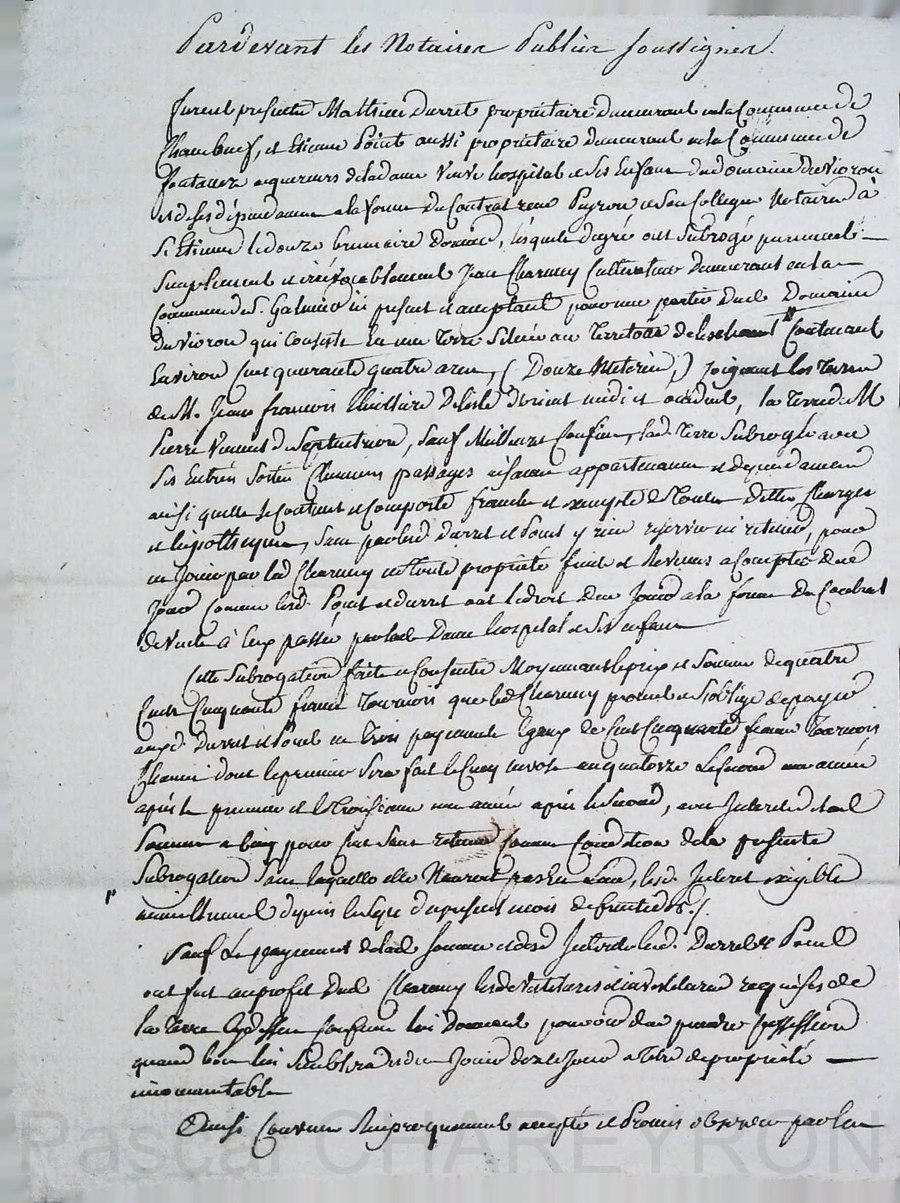 Pardevant les Notaires Publics soussignés.
furent presents Mathieu Durret propriétaire demeurant en la Commune de
Chambeuf, et Etienne Point aussi propriétaire demeurant en la Commune de
fontanes acquereurs de la dame Veuve hospital et ses Enfans du domaine du Vioron
et de ses dépendances a la forme du Contrat reçu Peyron et son Collegue Notaires à
St Etienne le douze brumaire dernier, lesquels de gré ont Subrogé purement
Simplement et irrévocablement Jean Charmey Cultivateur demeurant en la
Commune de St. Galmier ici présent et acceptant pour une partie dud. Domaine
du Vioron qui Consiste En une Terre Située au Territoire Contenant
Environ Cent quarante quatre ares, (Douze Meterées,) Joignant les Terres
de M. Jean françois Delisle d'orient midi et occident, la Terre de M
Pierre du Septentrion, Sauf Meilleurs Confins, lad. Terre Subrogée avec
Ses Entrées Sorties Chemins passages aisances appartenances et dependances
ainsi quelle se Contient et Comporte franche et exempte de Toutes dettes Charges
et hipotheques, Sans par lesd. Durret et Point y rien réserver ni retenir, pour
en Jouir par led. Charmey en Toute propriété fruits et Revenus a Compter de ce
Jour Comme lesd. Point et Durret ont le droit d'en Jouir a la forme du Contrat
de Vente à Eux passée par lad. Dame hospital et Ses enfans
Cette Subrogation faite et Consentie Moyennant le prix et Somme de quatre
Cents Cinquante francs Tournois que led. Charmey promet et S'oblige de payer
auxd. Durret et Point en Trois payements Egaux de Cent Cinquante francs Tournois
Chacun dont le premier Sera fait le Cinq an quatorze Le Second une année
après le premier et le Troisieme une année après le Second, avec Interets de lad.
Somme a Cinq pour Cent Sans retenue Comme Condition de la presente
Subrogation Sans laquelle elle N'auroit pas Eu Lieu, lesd. Interets exigible
annuellement depuis le du present mois de fructidor./.
Sauf Le payement de lad. Somme et desd. Interets lesd. Durret et Point
ont fait au profit dud. Charmey les devetitures et investitures requises de
la Terre Cydessus Confinée lui donnent pouvoir d'en prendre possession
quand bon lui Semblera et d'en Jouir dez ce Jour a Titre de propriété
incommutable
Ainsi Convenu Reciproquement accepté et Promis observer par les
Pascal CHAREYRON